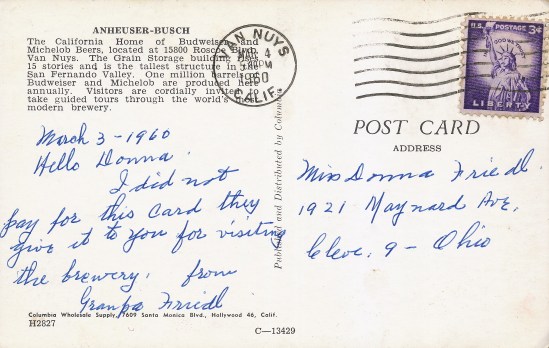 ANHEUSER-BUSCH
The California Home of Budweiser and
Michelob Beers, located at 15800 Roscoe Blvd.
Van Nuys. The Grain Storage building
15 stories and is the tallest structure in the
San Fernando Valley. One million barrels of
Budweiser and Michelob are produced here
annually. Visitors are cordially invited to
take guided tours through the world's most
modern brewery.
VAN NUYS
4
PM
1960
CALIF.
U.S. POSTAGE 3¢
IN GOD WE TRUST
LIBERTY
March 3-1960
Hello Donna.
I did not
pay for this card they
give it to you for visiting
the brewery. from
Granpa Friedl
Published and Distributed by Columbia
POST CARD
ADDRESS
Miss Donna Friedl.
1921 Maynard Ave.
Cleve. 9 - Ohio
Columbia Wholesale Supply, 7609 Santa Monica Blvd., Hollywood 46, Calif.
H2827
C-13429